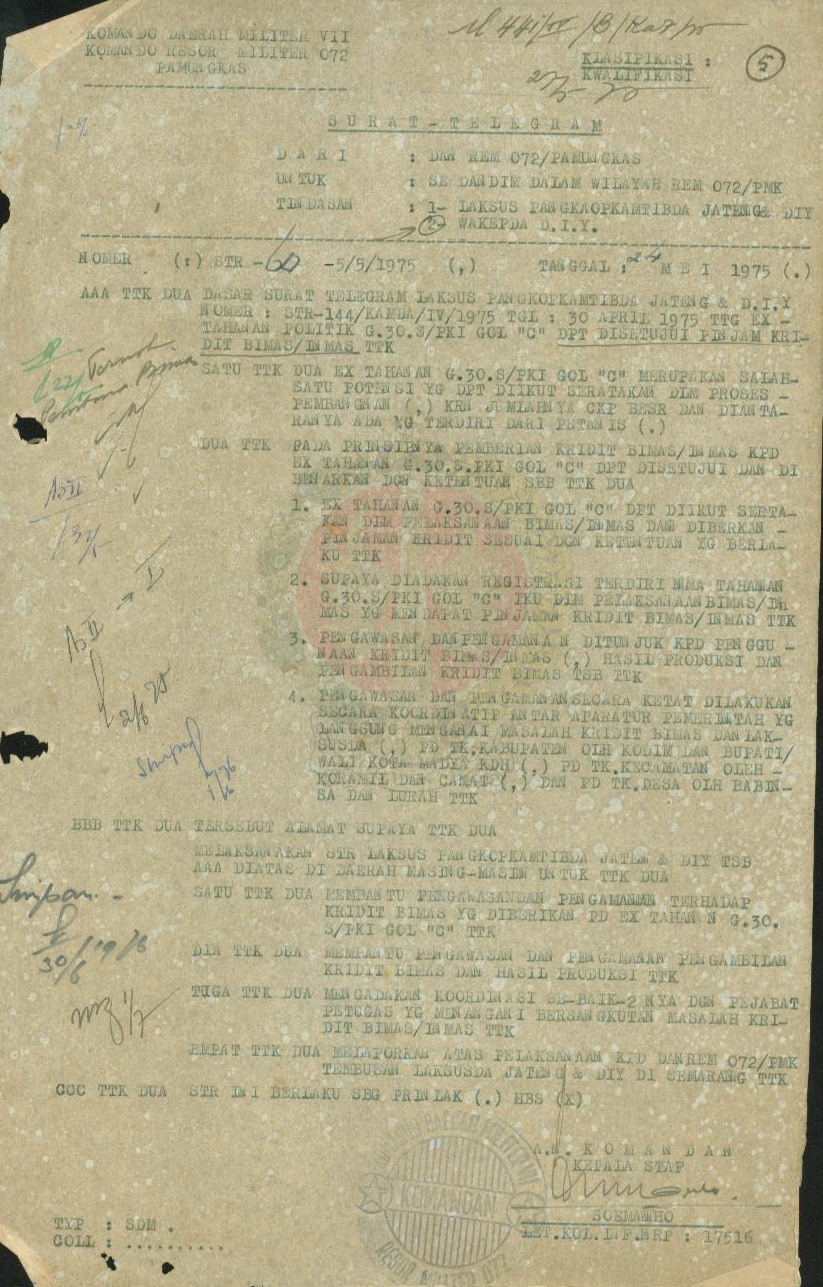 KOMANDO DAERAH MILITER VII
KOMANDO RESOR MILITER 072
PAMUNGKAS
KLASIFIKASI :
KWALIFIKASI
5
SURAT-TELEGRAM
DARI : DAN REM 072/PAMUNGKAS
UNTUK : SE DANDIM DALAM WILAYAH REM 072/PMK
TINDASAN : 1- LAKSUS PANGKAOPKAMTIBDA JATENG& DIY
2- WAKEPDA D.I.Y.
NOMER (:) STR -60 -5/5/1975 (,) TANGGAL : 24 MEI 1975 (.)
AAA TTK DUA DASAR SURAT TELEGRAM LAKSUS PANGKOPKAMTIBDA JATENG & D.I.Y
NOMER : STR-144/KAMDA/IV/1975 TGL : 30 APRIL 1975 TTG EX -
TAHANAN POLITIK G.30.S/PKI GOL "C" DPT DISETUJUI PINJAM KRI-
DIT BIMAS/INMAS TTK
SATU TTK DUA EX TAHANAN G.30.S/PKI GOL "C" MERUPAKAN SALAH-
SATU POTENSI YG DPT DIIKUT SERATAKAN DLM PROSES -
PEMBANGNAN (,) KRN JUMLAHNYA CKP BESR DAN DIANTA-
RANYA ADA YG TERDIRI DARI PETANIS (.)
DUA TTK PADA PRINSIPNYA PEMBERIAN KRIDIT BIMAS/INMAS KPD
EX TAHANAN G.30.S.PKI GOL "C" DPT DISETUJUI DAN DI
BENARKAN DGN KETENTUAN SBB TTK DUA
1. EX TAHANAN G.30.S/PKI GOL "C" DPT DIIKUT SERTA-
KAN DLM PELAKSANAAN BIMAS/INMAS DAN DIBERKAN -
PINJAMAN KRIDIT SESUAI DGN KETENTUAN YG BERLA-
KU TTK
2. SUPAYA DIADAKAN REGISTRASI TERDIRI NAMA TAHANAN
G.30.S/PKI GOL "C" IKU DLM PELAKSANAANBIMAS/IN
MAS YG MENDAPAT PINJAMAN KRIDIT BIMAS/INMAS TTK
3. PENGAWASAN DANPENGAMANAN DITUNJUK KPD PENGGU -
NAAN KRIDIT BIMAS/INMAS (,) HASIL PRODUKSI DAN
PENGAMBILAN KRIDIT BIMAS TSB TTK
4. PENGAWASAN DAN PENGAMANANSECARA KETAT DILAKUKAN
SECARA KOORDINATIP ANTAR APARATUR PEMERINTAH YG
LANGSUNG MENGANAI MASALAH KRIDIT BIMAS DANLAK-
SUSDA (,) PD TK.KABUPATEN OLH KODIM DAN BUPATI/
WALI KOTA MADYA KDH (,) PD TK.KECAMATAN OLEH -
KORAMIL DAN CAMAT (,) DAN PD TK.DESA OLH BABIN-
SA DAN LURAH TTK
BBB TTK DUA TERSEBUT ALAMAT SUPAYA TTK DUA
MELAKSANAKAN STR LAKSUS PANGKOPKAMTIBDA JATEN & DIY TSB
AAA DIATAS DI DAERAH MASING-MASIN UNTUK TTK DUA
SATU TTK DUA MEMBANTU PENGAWASANDAN PENGAMANAN TERHADAP
KRIDIT BIMAS YG DIBERIKAN PD EX TAHAN N G.30.
S/PKI GOL "C" TTK
DIA TTK DUA MEMBANTU PENGAWASAN DAN PENGAMANAN PENGAMBILAN
KRIDIT BIMAS DAN HASIL PRODUKSI TTK
TIGA TTK DUA MENGADAKAN KOORDINASI SE-BAIK-2 NYA DGN PEJABAT
PETUGAS YG MENANGANI BERSANGKUTAN MASALAH KRI-
DIT BIMAS/INMAS TTK
EMPAT TTK DUA MELAPORKAN ATAS PELAKSANAAN KPD DANREM 072/PMK
TEMBUSAN LAKSUSDA JATENG & DIY DI SEMARANG TTK
CCC TTK DUA STR INI BERLAKU SBG PRINLAK (.) HBS (X)
Simpan. -
30/6
A.N. KOMANDAN
KEPALA STAF
KOMANDAN
RESOR MILITER 072
LET.KOL.INF.NRP : 17516
TYP : SDM .
COLL : ..........